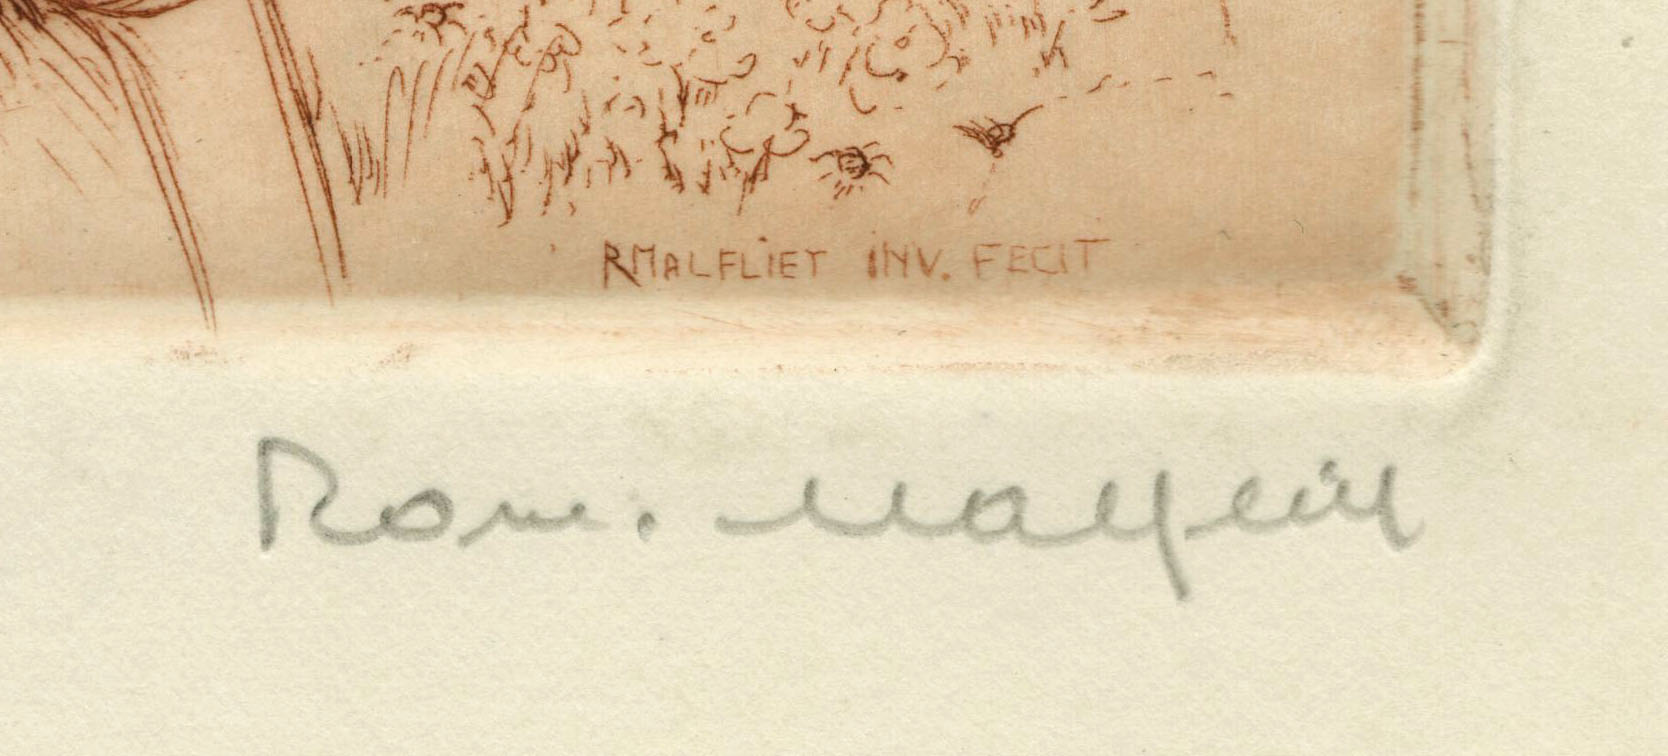 RMALFLIET INV. FECIT
Rom. Malfliet